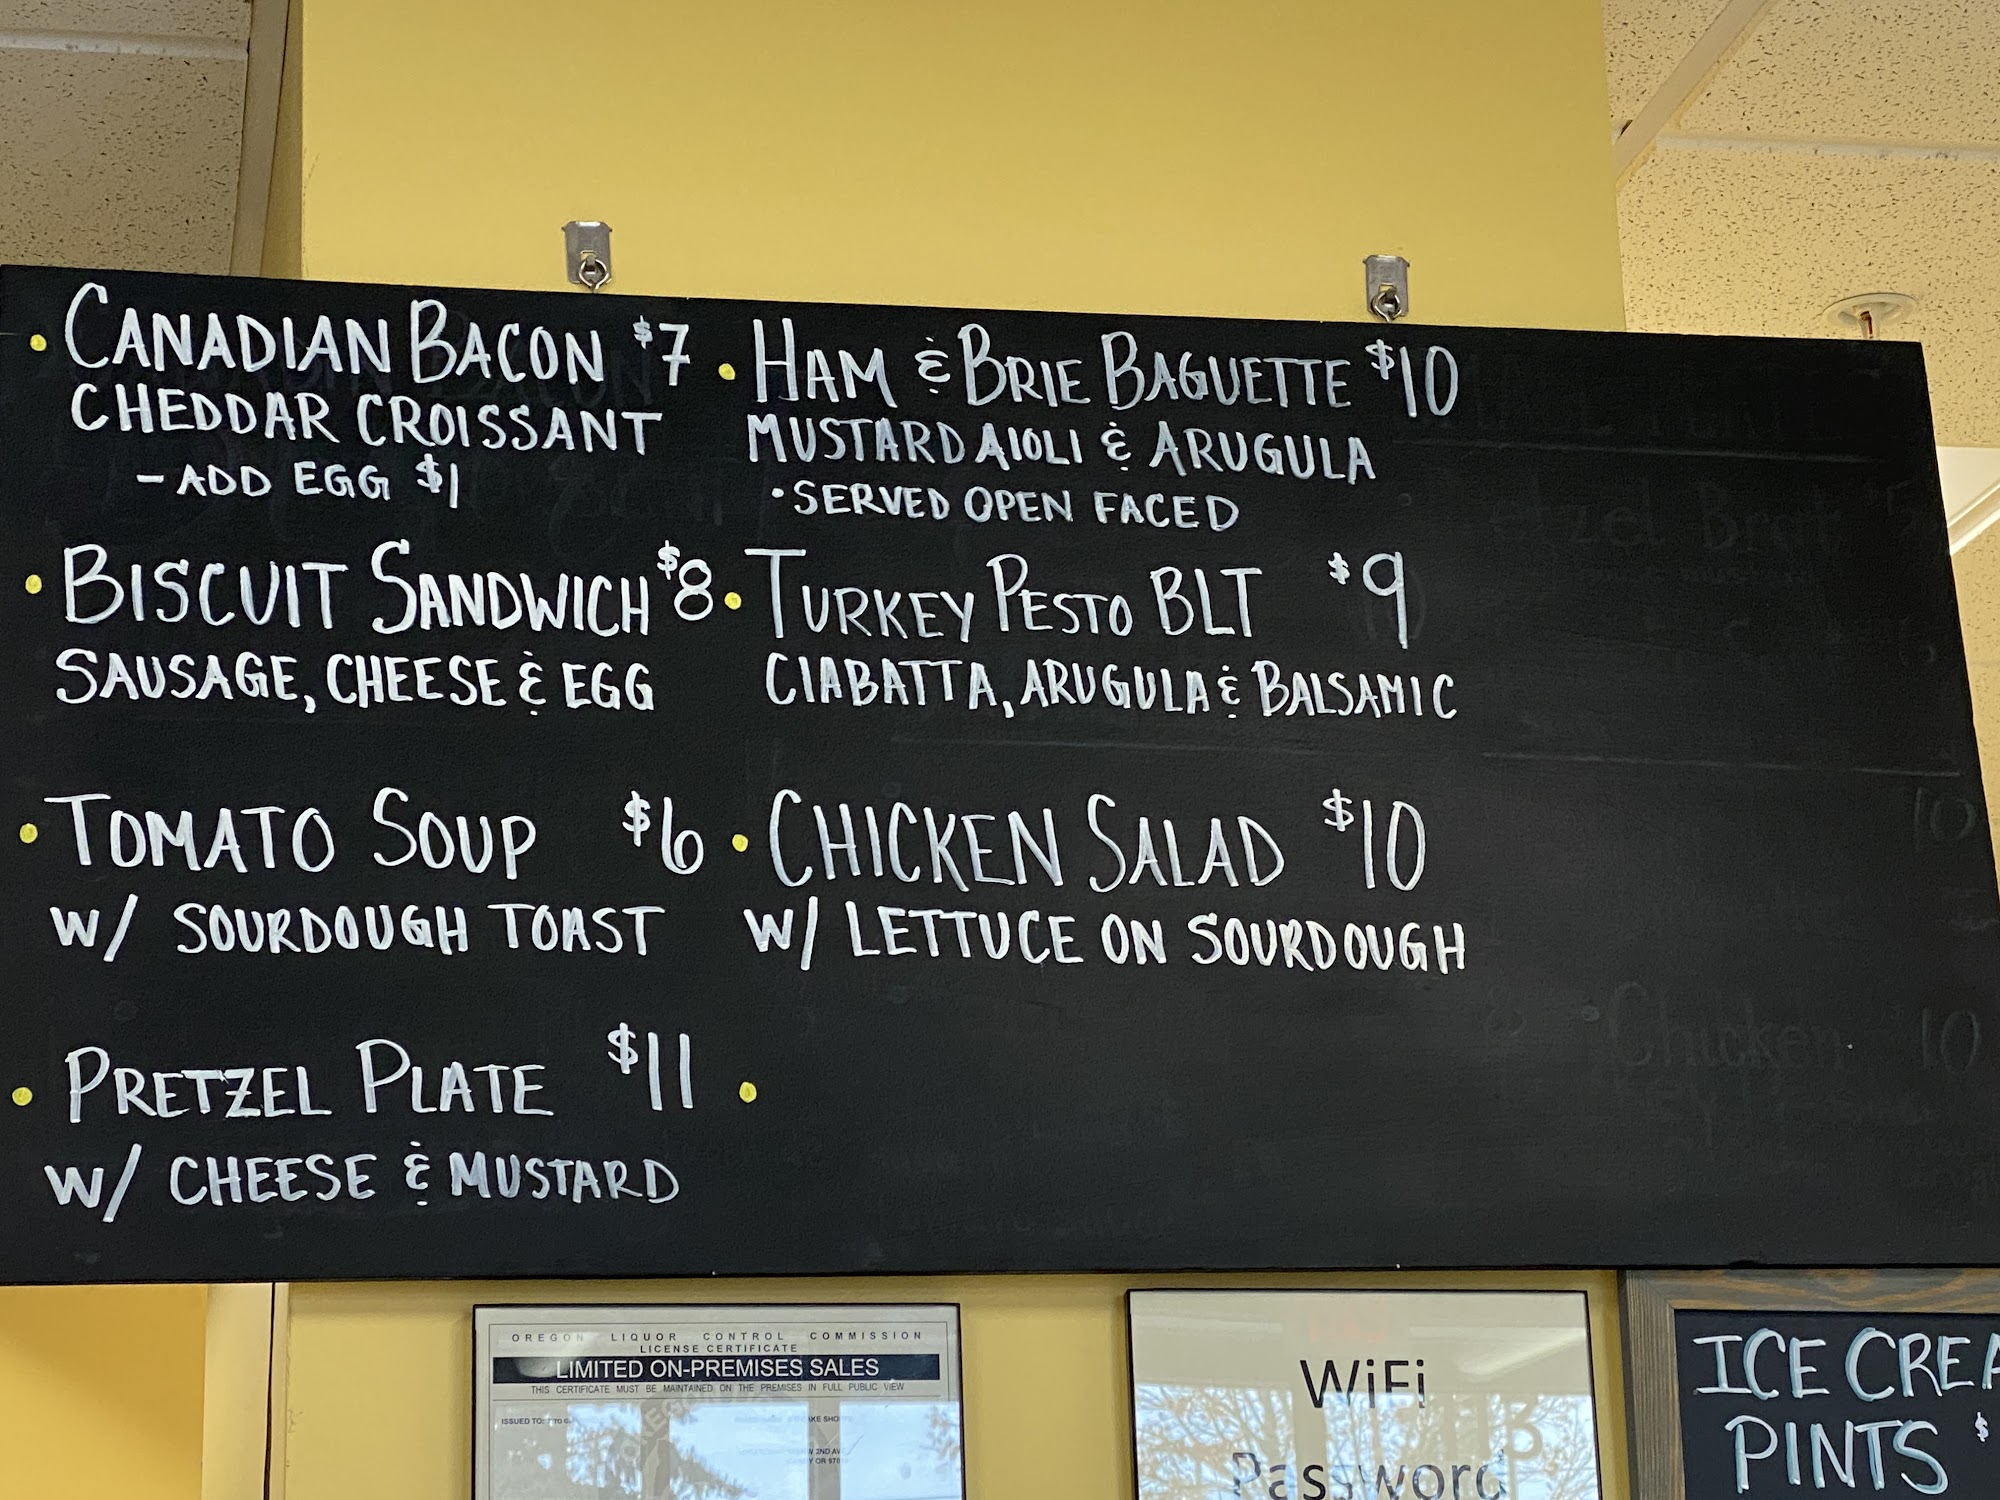 • CANADIAN BACON $7
CHEDDAR CROISSANT
- ADD EGG $1
• BISCUIT SANDWICH $8
SAUSAGE, CHEESE & EGG
• TOMATO SOUP $6
W/ SOURDOUGH TOAST
• PRETZEL PLATE $11
W/ CHEESE & MUSTARD
• HAM & BRIE BAGUETTE $10
MUSTARD AIOLI & ARUGULA
• SERVED OPEN FACED
• TURKEY PESTO BLT $9
CIABATTA, ARUGULA & BALSAMIC
• CHICKEN SALAD $10
W/ LETTUCE ON SOURDOUGH
•
Chicken 10
OREGON LIQUOR CONTROL COMMISSION
LICENSE CERTIFICATE
LIMITED ON-PREMISES SALES
THIS CERTIFICATE MUST BE MAINTAINED ON THE PREMISES IN FULL PUBLIC VIEW
ISSUED TO:
2ND AVE
WiFi
Password
ICE CREA
PINTS $